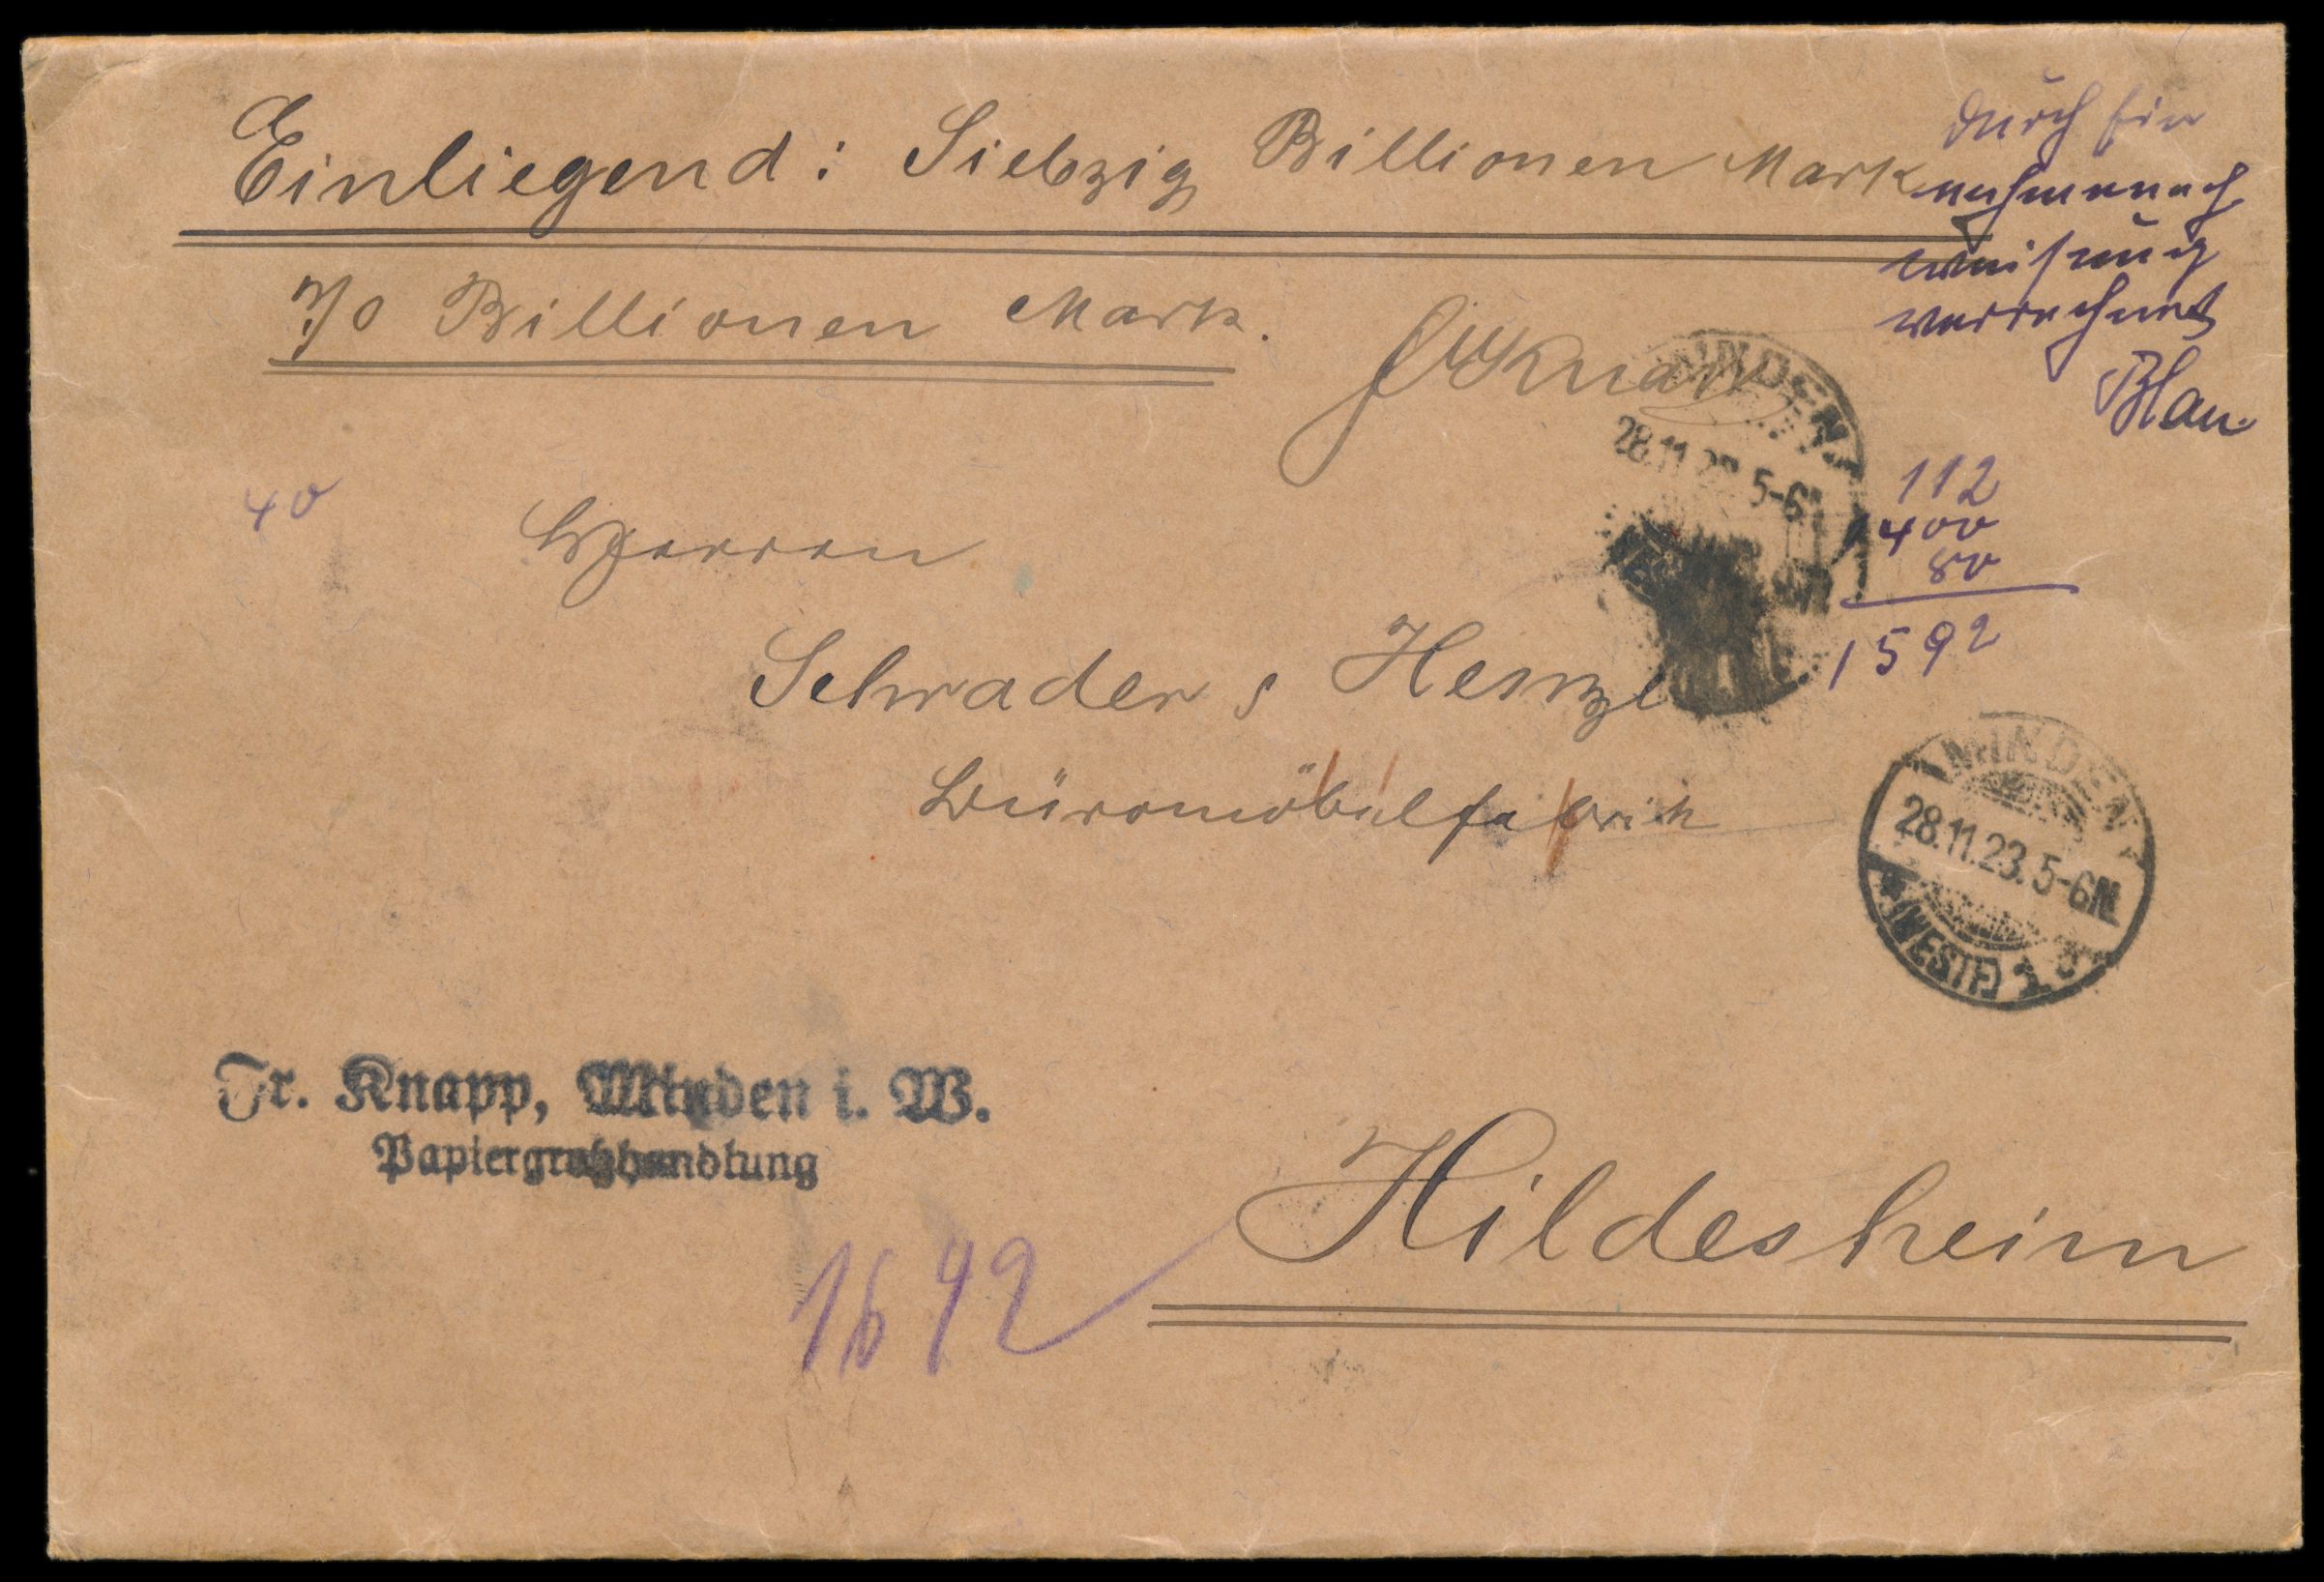 Einliegend: Siebzig Billionen Mark
70 Billionen Mark.
durch Ein
nahmenach
weisung
verrechnet
Blau
MINDEN
28.11.23. 5-6N
(WESTF)
40
112
1400
80
1592
Herren
Schrader & Henze
Büromöbelfabrik
MINDEN
28.11.23. 5-6N
(WESTF)
Fr. Knapp, Minden i. W.
Papiergroßhandlung
Hildesheim